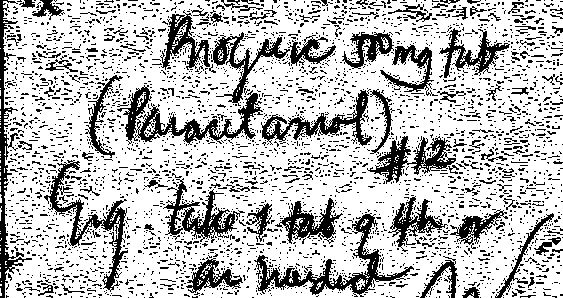 500mg tab
(Paracetamol)
#12
Sig. take 1 tab q 4h or
as needed